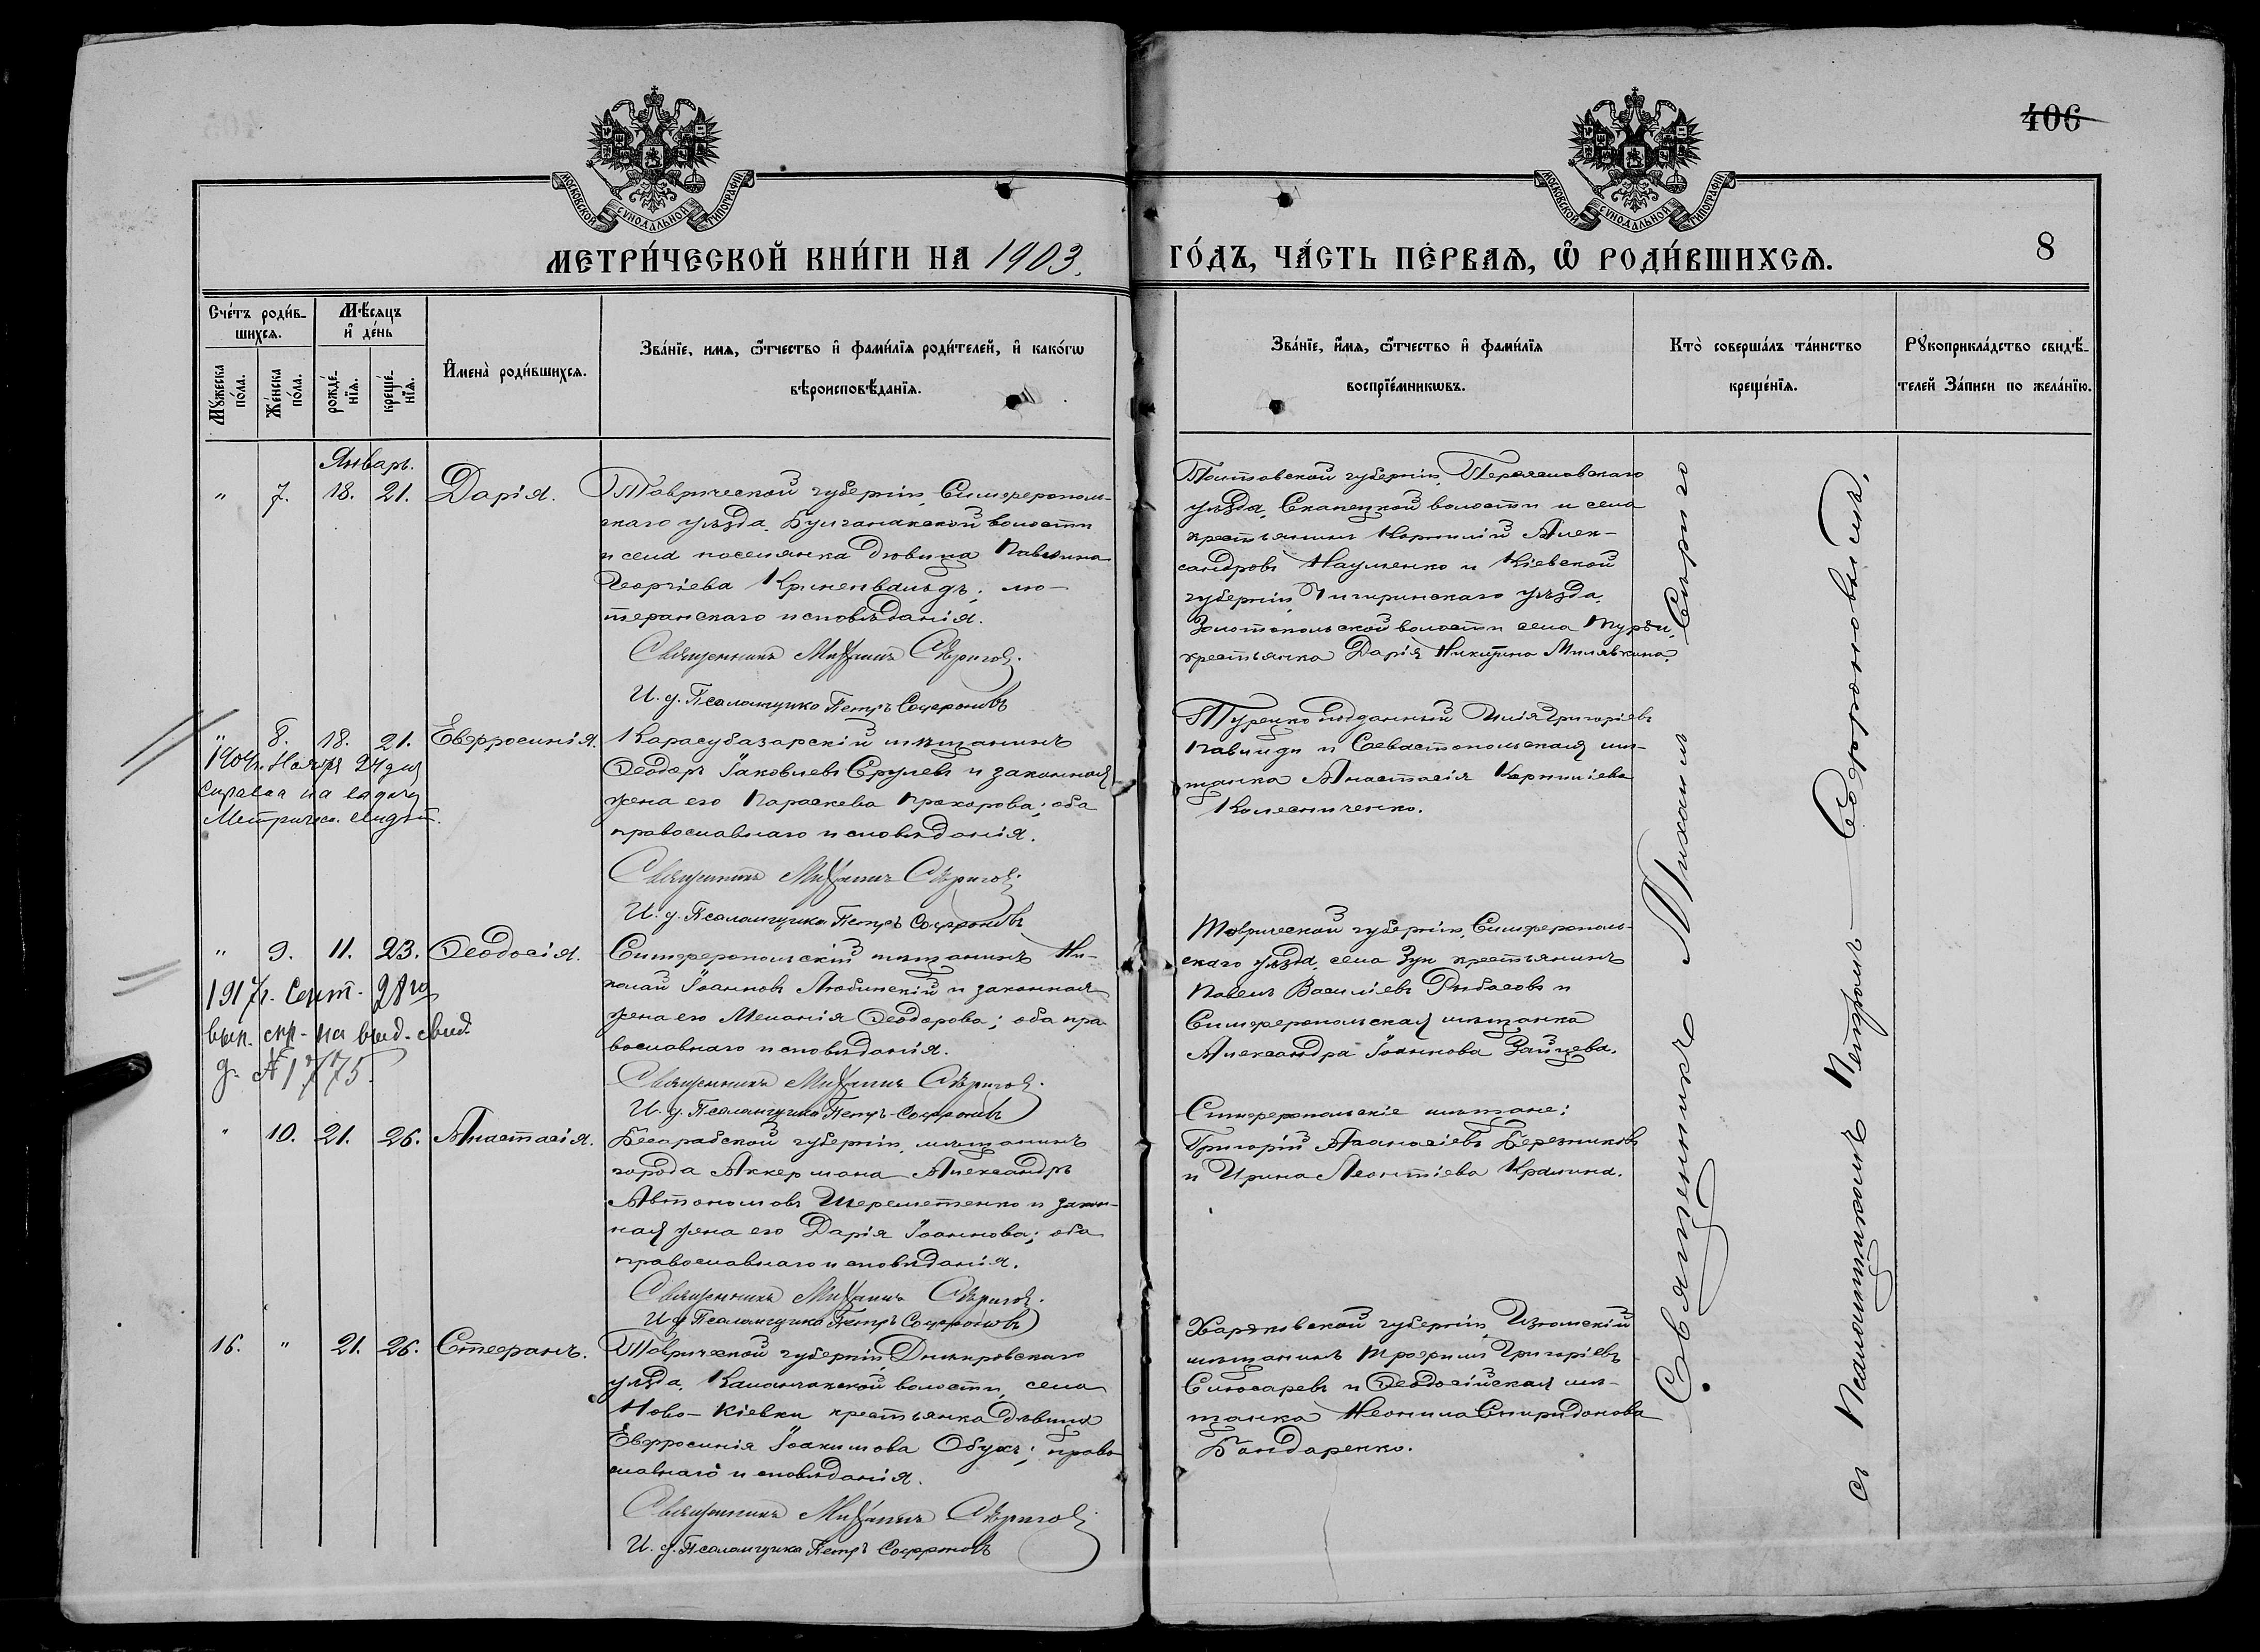 406
МОСКОВСКОЙ СУНОДАЛЬНОЙ ТИПОГРАФІИ
МОСКОВСКОЙ СУНОДАЛЬНОЙ ТИПОГРАФІИ
МЕТРИ́ЧЕСКОЙ КНИ́ГИ НА 1903.
ГО́ДЪ, ЧА́СТЬ ПЕ́РВАѦ, Ѡ҆ РОДИ́ВШИХСѦ.
8
Сче́тъ роди́в-
шихсѧ.
Мѣ́сѧцъ
и҆ де́нь
Мꙋ́жеска
по́ла.
Же́нска
по́ла.
рожде́-
нїѧ.
креще́-
нїѧ.
И҆мена̀ роди́вшихсѧ.
Зва́нїе, имѧ, ѻ҆́тчество и҆ фами́лїѧ роди́телей, и҆ како́гѡ
вѣроисповѣ́данїѧ.
Зва́нїе, и҆́мѧ, ѻ҆́тчество и҆ фами́лїѧ
воспрїе́мникѡвъ.
Кто̀ соверша́лъ та́инство
креще́нїѧ.
Рꙋкоприкла́дство свидѣ́-
телей За́писи по жела́нїю.
Январь.
" 7. 18. 21. Дарія.
Таврической губерніи, Симферополь-
скаго уѣзда, Булганакской волости
и села поселянка дѣвица Павлина
Георгіева Криненвальдъ; лю-
теранскаго исповѣданія.
Священникъ Михаилъ Сѣриговъ.
И. д. Псаломщика Петръ Софроновъ
Полтавской губерніи, Переяславскаго
уѣзда, Скопецкой волости и села
крестьянинъ Корнилій Алек-
сандровъ Науменко и Кіевской
губерніи, Чигиринскаго уѣзда,
Златопольской волости села Турьи,
крестьянка Дарія Никитина Милявкина.
" 8. 18. 21. Евфросинія.
1904г. Ноября 24 дня
справка на выдачу
Метрическ. свидѣт.
Карасубазарскій мѣщанинъ
Ѳеодоръ Іаковлевъ Срулевъ и законная
жена его Параскева Прохорова; оба
православнаго исповѣданія.
Священникъ Михаилъ Сѣриговъ
И. д. Псаломщика Петръ Софроновъ
Турецко подданный Илія Григоріевъ
Павлиди и Севастопольская мѣ-
щанка Анастасія Корниліева
Колесниченко.
" 9. 11. 23. Ѳеодосія.
1917г. Сент. 28го
вып. спр. на выд. свид.
д. № 1775.
Симферопольскій мѣщанинъ Ни-
колай Іоанновъ Любинскій и законная
жена его Меланія Ѳеодорова; оба пра-
вославнаго исповѣданія.
Священникъ Михаилъ Сѣриговъ.
И. д. Псаломщика Петръ Софроновъ
Таврической губерніи, Симферополь-
скаго уѣзда, села Зуи крестьянинъ
Павелъ Василіевъ Рыбасовъ и
Симферопольская мѣщанка
Александра Іоаннова Зайцева.
" 10. 21. 26. Анастасія.
Бесарабской губерніи, мѣщанинъ
города Аккермана Александръ
Автономовъ Шереметенко и закон-
ная жена его Дарія Іоаннова; оба
православнаго исповѣданія.
Священникъ Михаилъ Сѣриговъ.
И. д. Псаломщика Петръ Софроновъ
Симферопольскіе мѣщане:
Григорій Аѳанасіевъ Березниковъ
и Ирина Леонтіева Кралина.
16. " 21. 26. Стефанъ.
Таврической губерніи, Днѣпровскаго
уѣзда, Каланчакской волости, села
Ново-Кіевки крестьянка дѣвица
Евфросинія Іоакимова Обухъ; право-
славнаго исповѣданія.
Священникъ Михаилъ Сѣриговъ
И. д. Псаломщика Петръ Софроновъ
Харьковской губерніи, Изюмскій
мѣщанинъ Трофимъ Григоріевъ
Слюсаревъ и Ѳеодосійская мѣ-
щанка Неонила Спиридонова
Бондаренко.
Священникъ Михаилъ Сѣриговъ
съ Псаломщикомъ Петромъ Софроновымъ.